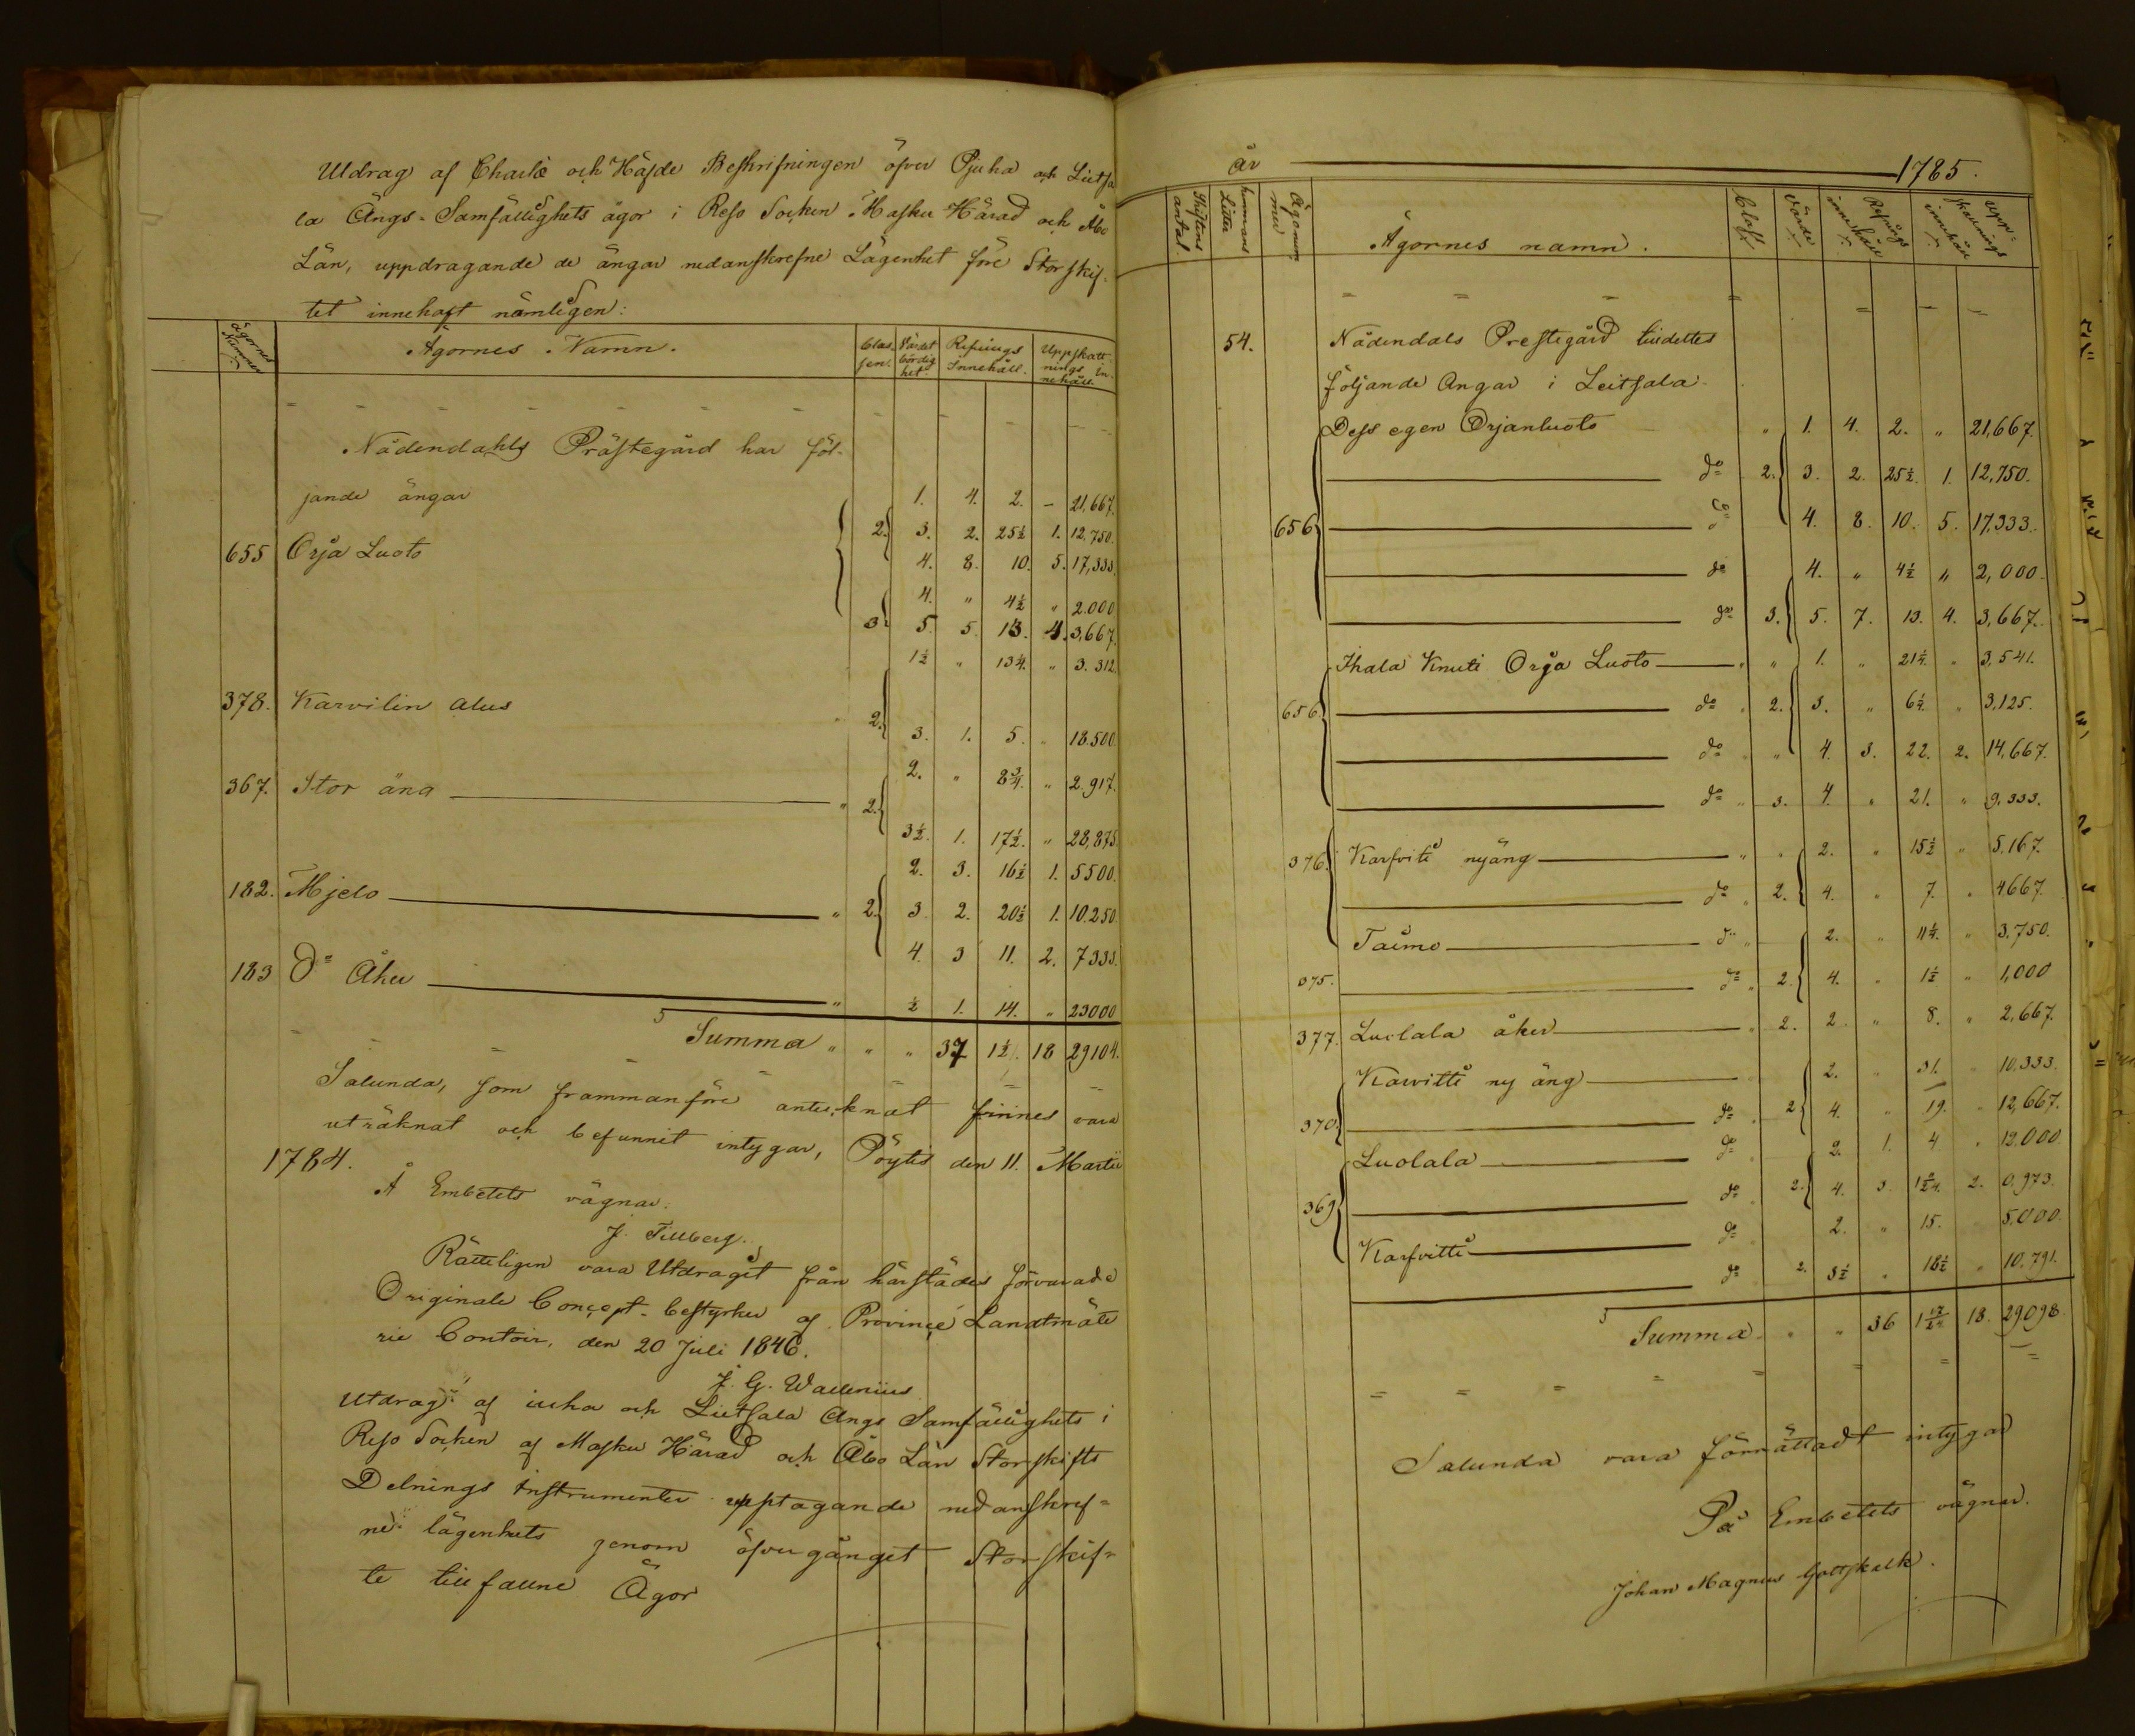 Utdrag af Charte och Häfde Beskrifningen öfver Pjuha och Lietsa
la Ängs-Samfällighets ägor i Reso Socken Masku Härad och Åbo
Län, uppdragande de ängar nedanskrefne Lägenhet före Storskif-
tet innehaft nämligen:
ägornes Nummer Ägornes Namn. Clas- sen. Värdet bördig het. Refnings Innehåll. Uppskatt nings In- nehåll.
Nådendahls Prästegård har föl-
jande ängar 1. 4. 2. - 21,667.
2. 3. 2. 25½ 1. 12,750.
655 Orja Luoto 4. 8. 10. 5. 17,333.
4. " 4½ " 2.000
3. 5. 5. 13. 4. 3,667.
1½ " 13¼. " 3.312.
378. Karvilin alus 2. 3. 1. 5. " 18.500.
2. " 8¾. " 2.917.
367. Stor äng " 2. 3½. 1. 17½. " 28,875.
2. 3. 16½ 1. 5500.
182. Mjelo " 2. 3. 2. 20½ 1. 10.250.
4. 3 11. 2. 7333.
183 Do Åker " ½ 1. 14. " 23000
Summa " " " 37 1½. 18 29104.
Salunda, som frammanföre antecknat finnes vara
uträknat och befunnit intygar, Pöytis den 11. Martii
1784.
Å Embetets vägnar.
J. Tillberg.
Rätteligen vara Utdraget från härstädes förvarade
Originale Concept. bestyrker af Province Landtmäte
rie Contoir, den 20 Juli 1846.
J. G. Wallenius
Utdrag af iuha och Lietsala Ängs Samfällighets i
Reso Socken af Masku Härad och Åbo Län Storskifts
Delnings instrumenter upptagande nedanskref-
ne lägenhets genom öfvergånget Storskif-
te tillfallne Ägor
År 1785.
Skiftens antal. hemmans Litter Ägonum mer Ägornes namn. Class. värde Refnings innehåll Upp- skattnings innehåll
54. Nådendals Prestegård tildeltes
följande Ängar i Leitsala
Dess egen Orjanluoto " 1. 4. 2. " 21,667.
do 2. 3. 2. 25½. 1. 12,750.
656 do 4. 8. 10. 5. 17,333.
do 4. " 4½ " 2,000.
do 3. 5. 7. 13. 4. 3,667.
Ihala Knuti Orja Luoto " " 1. " 21¼. " 3,541.
656. do " 2. 3. " 6¼. " 3,125.
do " " 4. 3. 22. 2. 14,667.
do " 3. 4. " 21. " 9,333.
376. Karfviti nyäng " " 2. " 15½ " 5.167.
do " 2. 4. " 7. " 4667.
Taimo do " 2. " 11¼. " 3.750.
375. do " 2. 4. " 1½ " 1,000
377. Luolala åker " 2. 2. " 8. " 2,667.
Karvitti ny äng 2. " 31. " 10.333.
370. do " 2 4. " 19. " 12,667.
Luolala do 2. 1. 4 " 12.000
369 do 2. 4. 3. 2. 0,973.
Karfvitti do 2. " 15. 5,000.
do 2. 3½ " 18½ " 10.791.
Summa. " " 36 1 17/24. 18. 29098.
Salunda vara förrättadt intygar
På Embetets vägnar.
Johan Magnus Gottskalk.